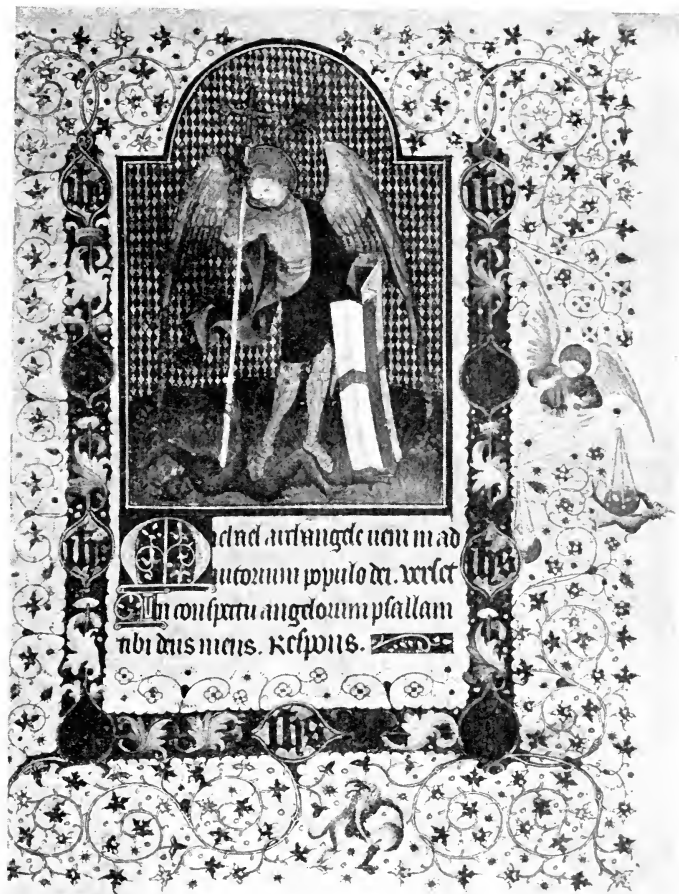 ihs ihs
Michael archangele ueni in ad
iutorium populo dei. verset
In conspectu angelorum psallam
tibi deus meus. Respons.
ihs ihs
ihs